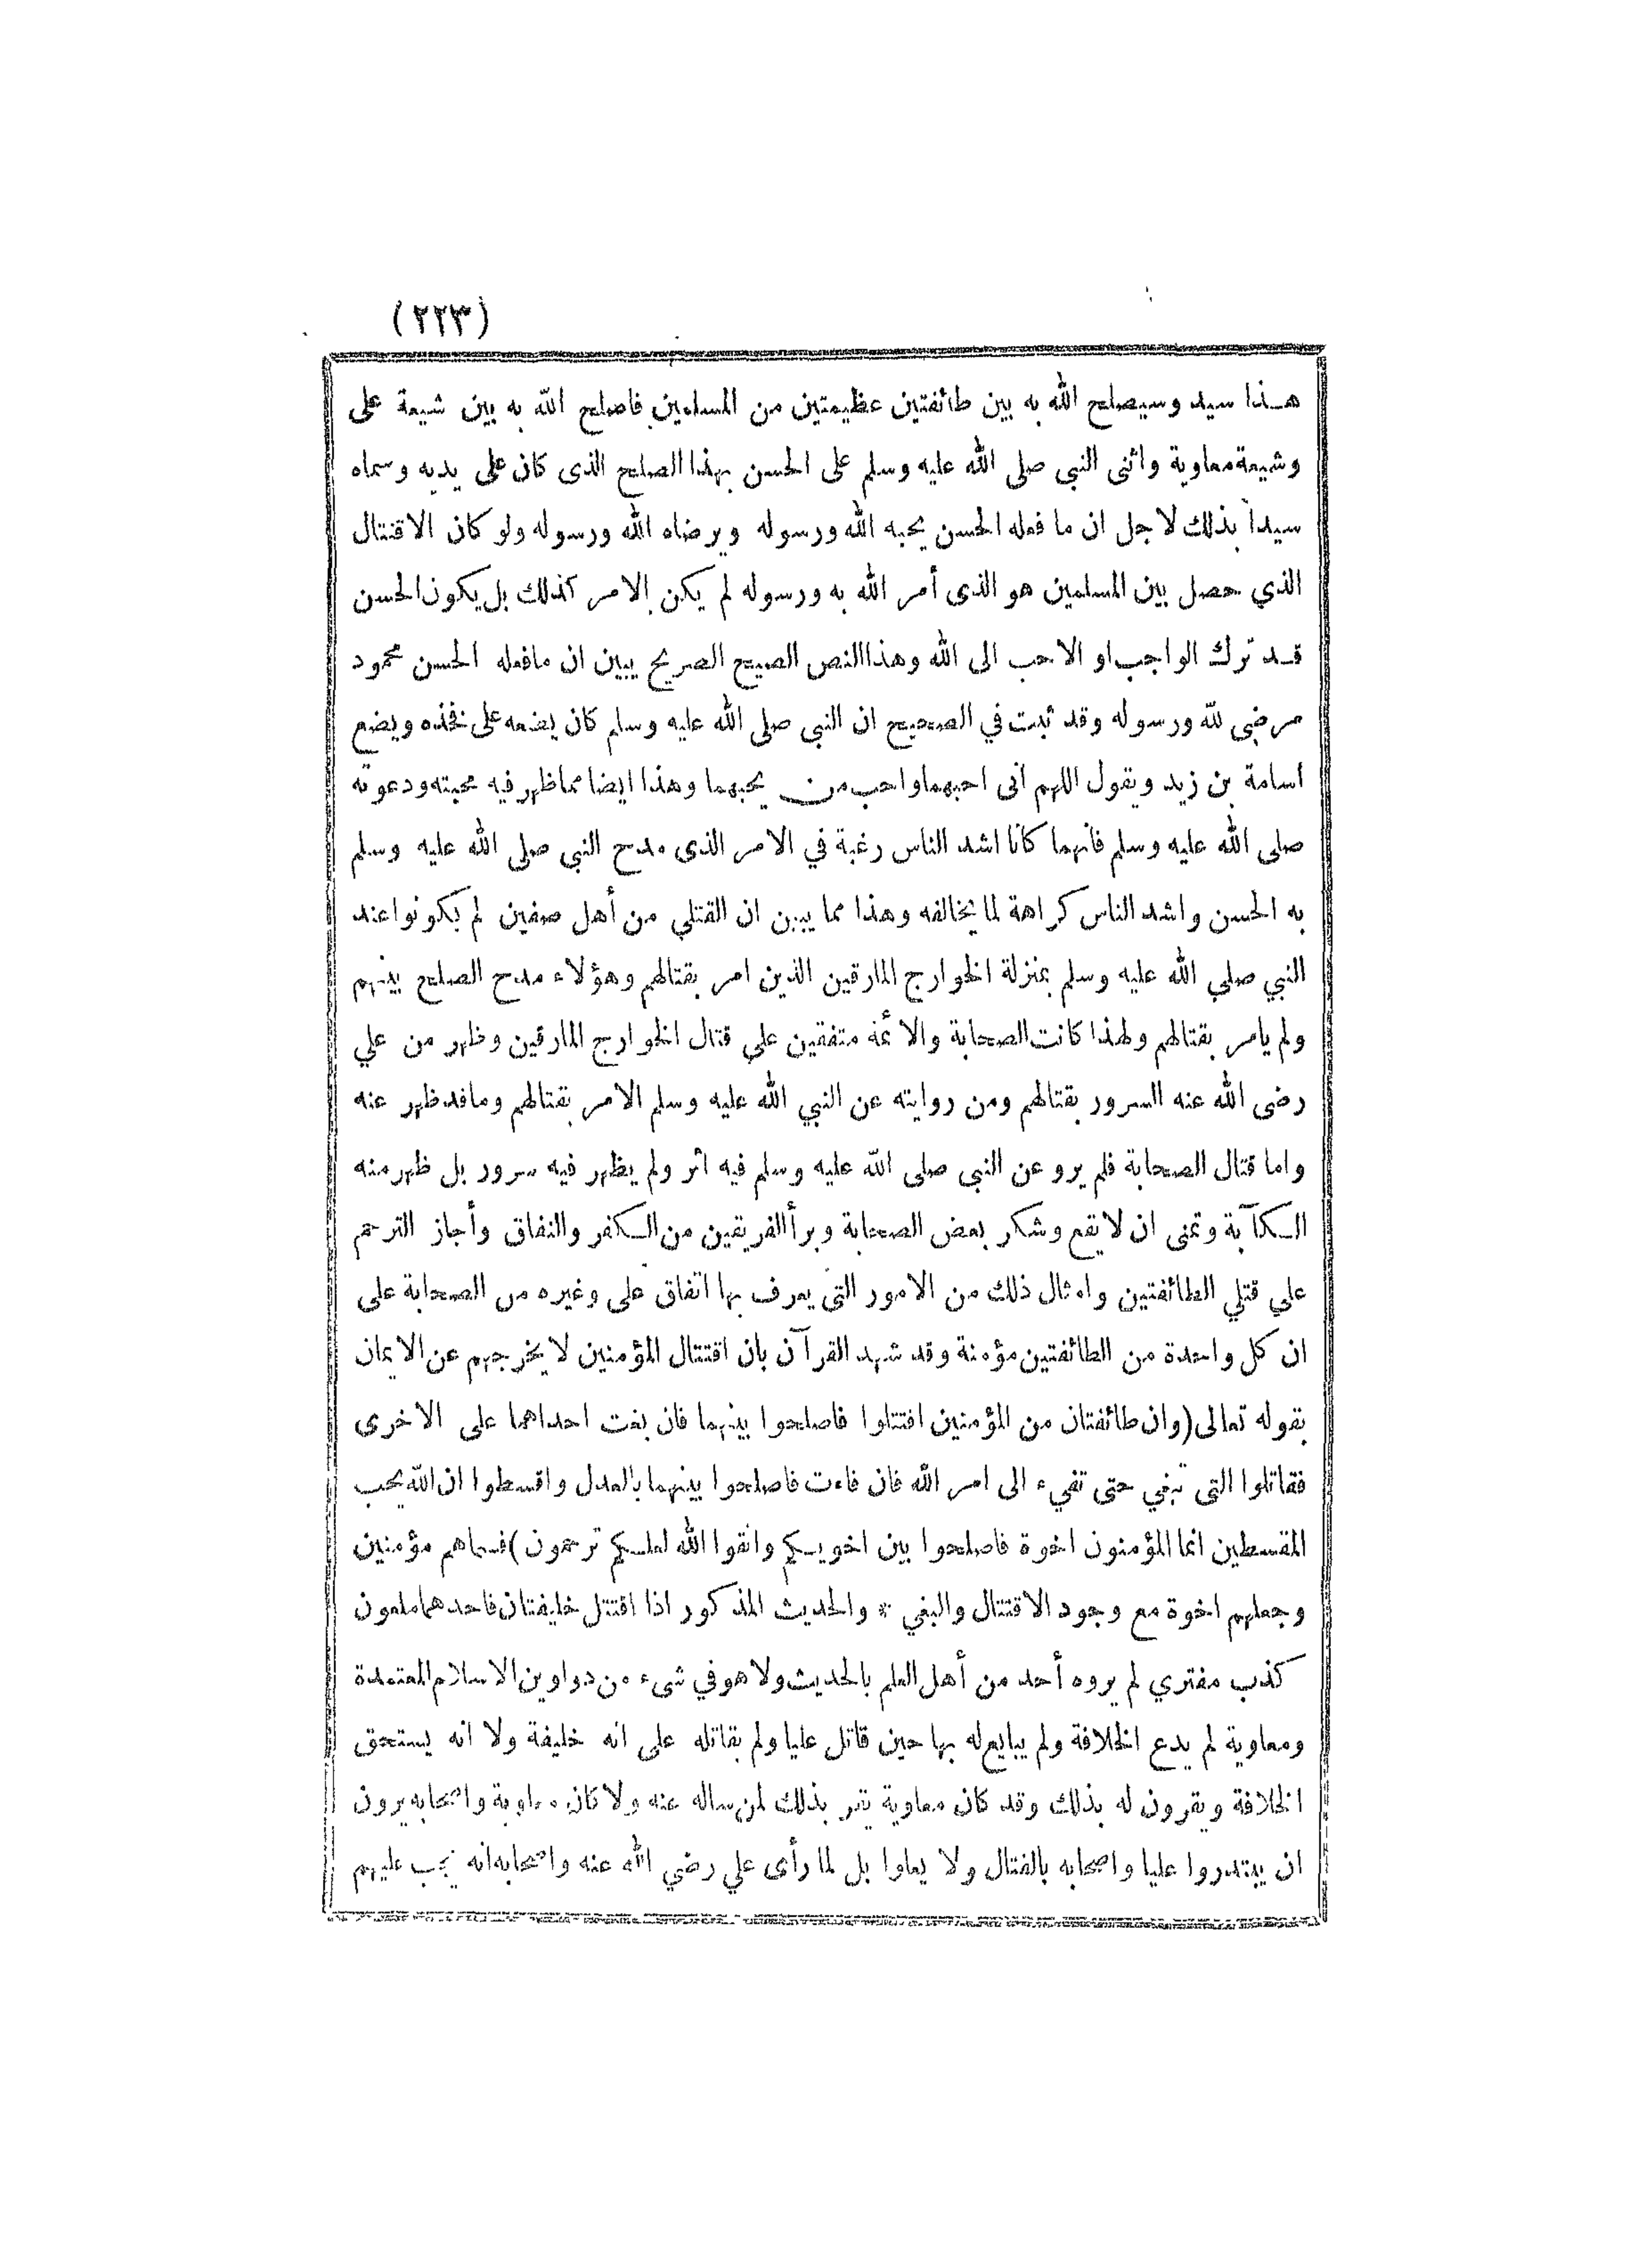 (٢٢٣)
هـذا سيد وسيصلح الله به بين طائفتين عظيمتين من المسلمين فاصلح الله به بين شيعة على
وشيعة معاوية واثنى النبى صلى الله عليه وسلم على الحسن بهذا الصلح الذى كان على يديه وسماه
سيداً بذلك لاجل ان ما فعله الحسن يحبه الله ورسوله ويرضاه الله ورسوله ولو كان الاقتتال
الذي حصل بين المسلمين هو الذى أمر الله به ورسوله لم يكن الامر كذلك بل يكون الحسن
قـد ترك الواجب او الاحب الى الله وهذا النص الصحيح الصريح يبين ان مافعله الحسن محمود
مرضى لله ورسوله وقد ثبت في الصحيح ان النبي صلى الله عليه وسلم كان يضعه على فخذه ويضع
أسامة بن زيد ويقول اللهم أنى احبهما واحب من يحبهما وهذا ايضا مما ظهر فيه محبته ودعوته
صلى الله عليه وسلم فانهما كانا اشد الناس رغبة في الامر الذى مدح النبي صلى الله عليه وسلم
به الحسن واشد الناس كراهة لما يخالفه وهذا مما يبين ان القتلي من أهل صفين لم يكونوا عند
النبي صلي الله عليه وسلم بمنزلة الخوارج المارقين الذين امر بقتالهم وهؤلاء مدح الصلح بينهم
ولم يامر بقتالهم ولهذا كانت الصحابة والائمة متفقين علي قتال الخوارج المارقين وظهر من علي
رضى الله عنه السرور بقتالهم ومن روايته عن النبي الله عليه وسلم الامر بقتالهم وماقد ظهر عنه
واما قتال الصحابة فلم يرو عن النبى صلى الله عليه وسلم فيه اثر ولم يظهر فيه سرور بل ظهر منه
الـكآبة وتمنى ان لا يقع وشكر بعض الصحابة وبرأ الفريقين من الـكفر والنفاق وأجاز الترحم
علي قتلي الطائفتين وامثال ذلك من الامور التى يعرف بها اتفاق على وغيره من الصحابة على
ان كل واحدة من الطائفتين مؤمنة وقد شهد القرآن بان اقتتال المؤمنين لا يخرجهم عن الايمان
بقوله تعالى (وان طائفتان من المؤمنين اقتتلوا فاصلحوا بينهما فان بغت احداهما على الاخرى
فقاتلوا التى تبغي حتى تفيء الى امر الله فان فاءت فاصلحوا بينهما بالعدل واقسطوا ان الله يحب
المقسطين انما المؤمنون اخوة فاصلحوا بين اخويـكم واتقوا الله لعلـكم ترحمون) فسماهم مؤمنين
وجعلهم اخوة مع وجود الاقتتال والبغي * والحديث المذكور اذا اقتتل خليفتان فاحدهما ملعون
كذب مفتري لم يروه أحد من أهل العلم بالحديث ولا هو في شىء من دواوين الاسلام المعتمدة
ومعاوية لم يدع الخلافة ولم يبايع له بها حين قاتل عليا ولم يقاتله على انه خليفة ولا انه يستحق
الخلافة ويقرون له بذلك وقد كان معاوية يقر بذلك لمن ساله عنه ولا كان معاوية واصحابه يرون
ان يبتدروا عليا واصحابه بالقتال ولا يعلوا بل لما رأى علي رضي الله عنه واصحابه انه يجب عليهم